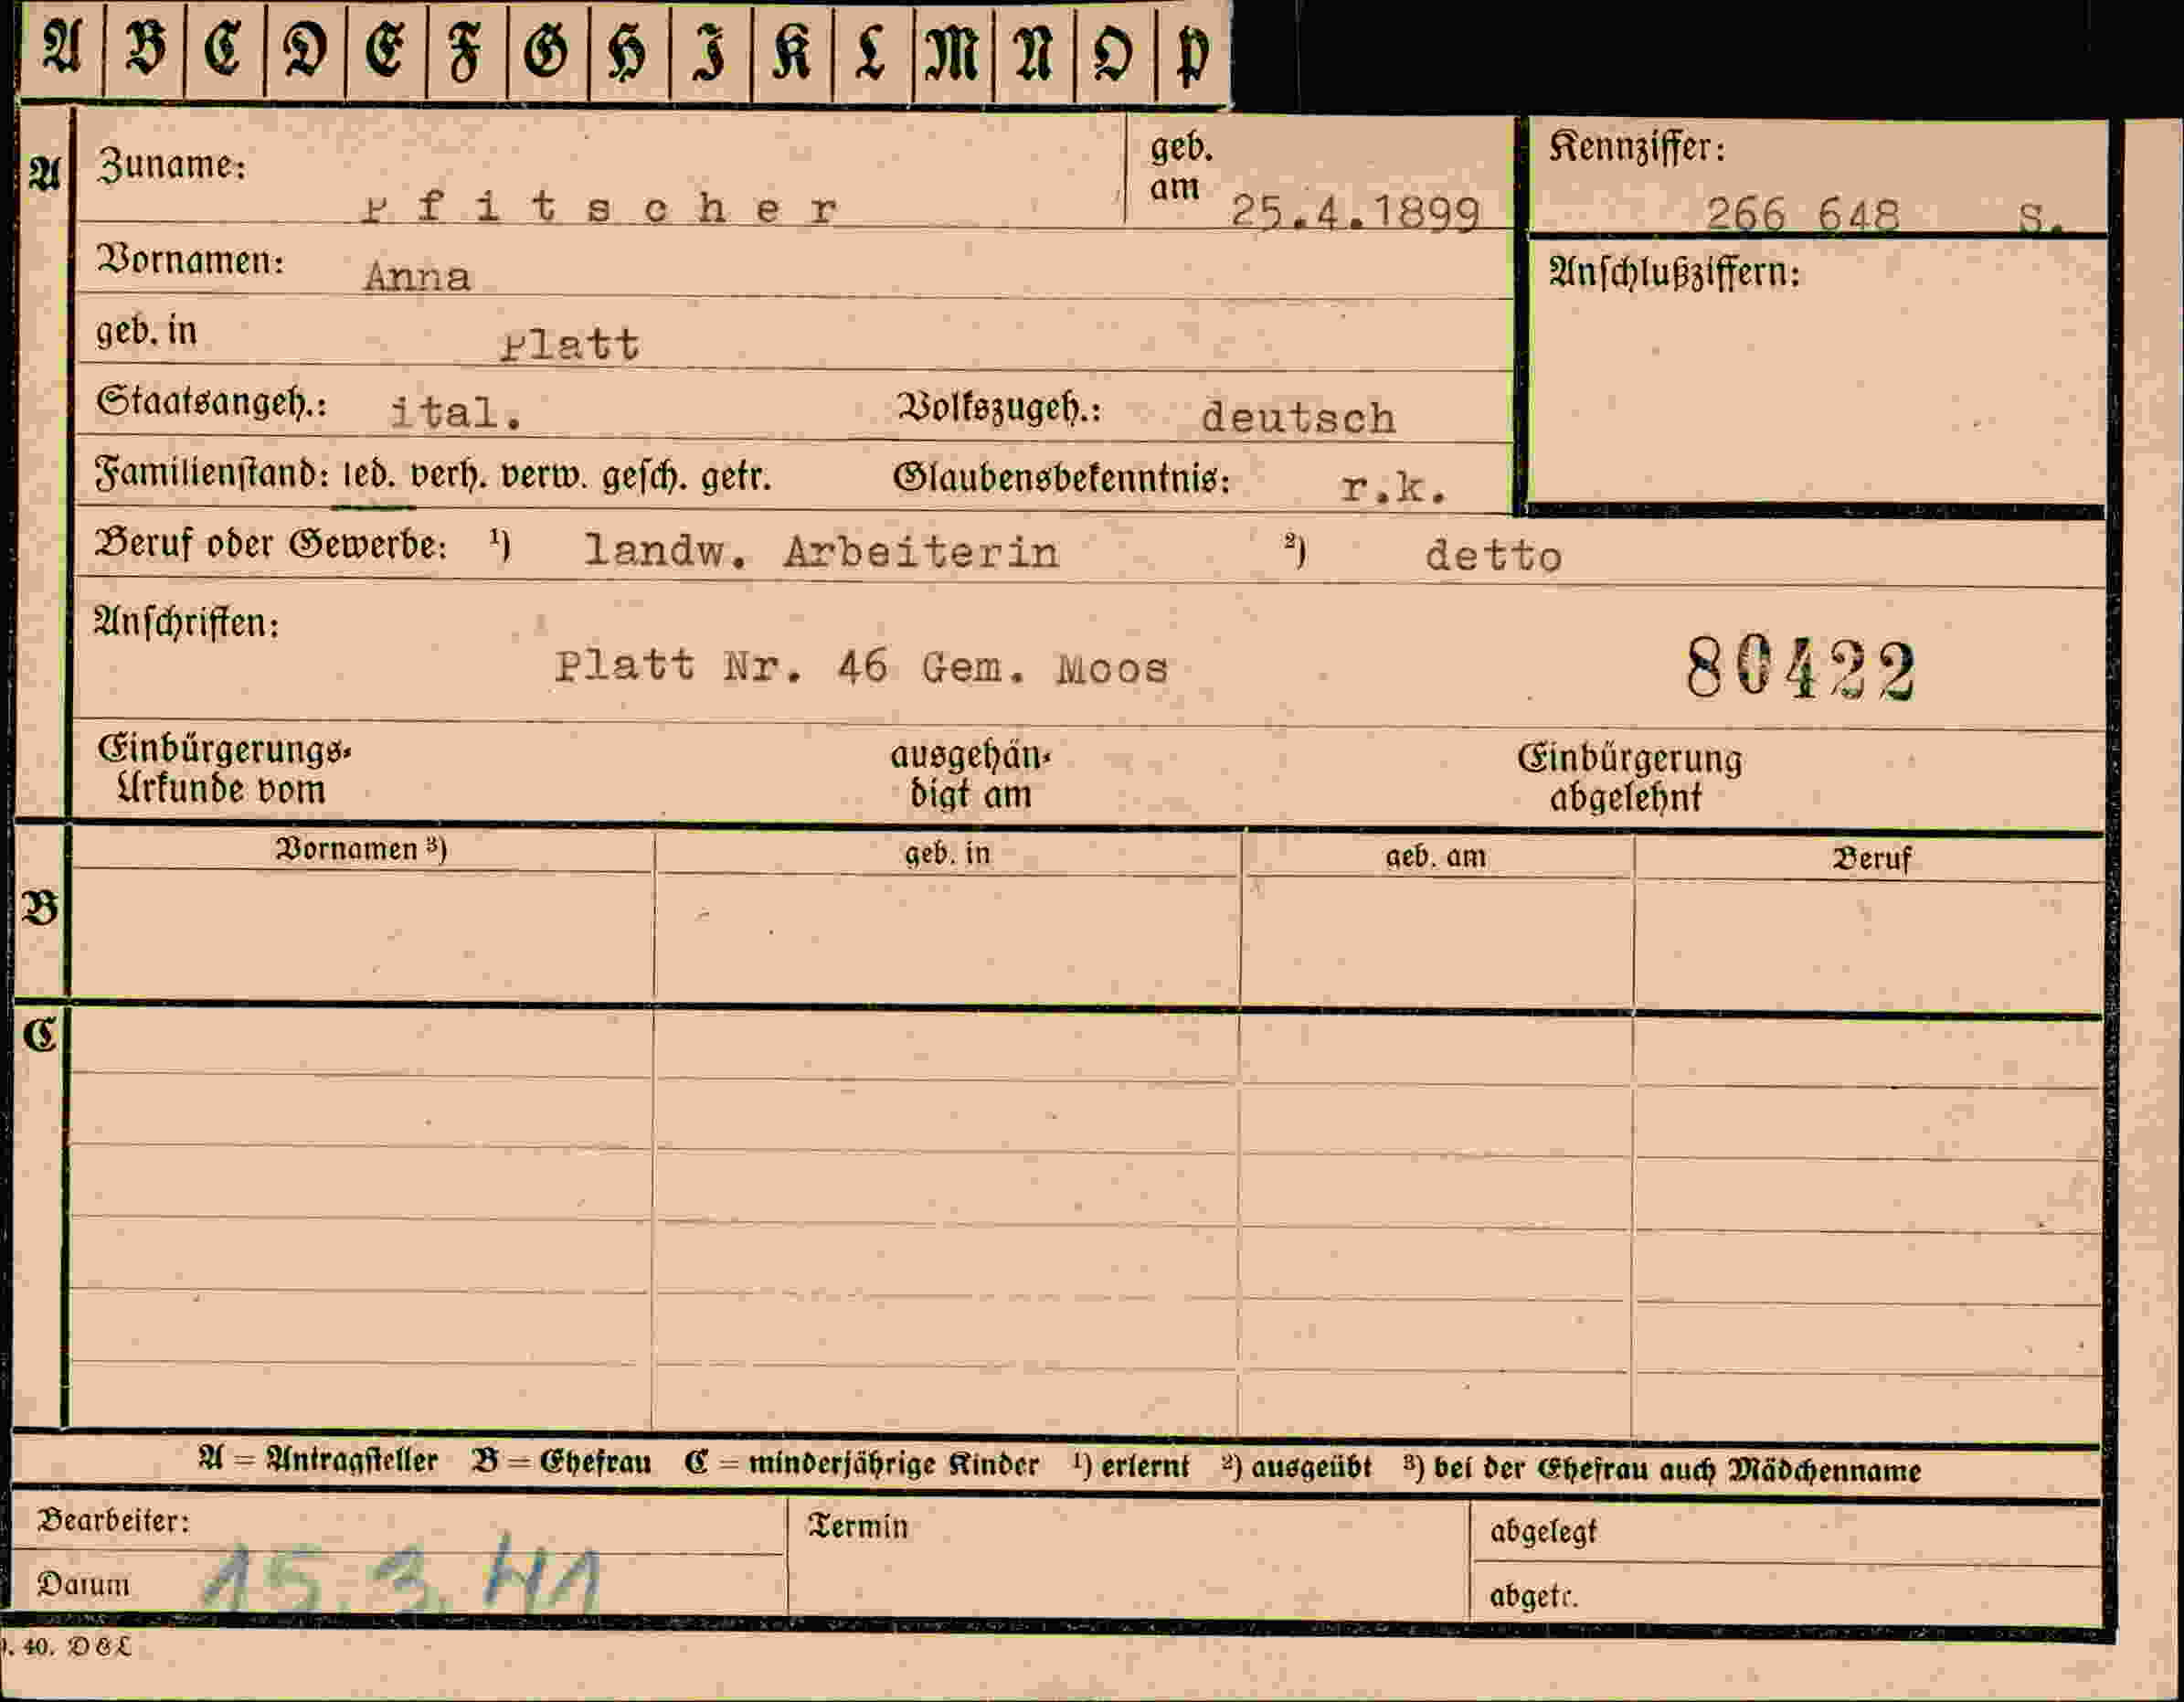 A B C D E F G H I K L M N O P
A Zuname: Pfitscher geb. am 25.4.1899 Kennziffer: 266 648 S.
Vornamen: Anna Anschlußziffern:
geb. in Platt
Staatsangeh.: ital. Volkszugeh.: deutsch
Familienstand: led. verh. verw. gesch. getr. Glaubensbekenntnis: r.k.
Beruf oder Gewerbe: 1) landw. Arbeiterin 2) detto
Anschriften:
Platt Nr. 46 Gem. Moos 80422
Einbürgerungs-Urkunde vom ausgehändigt am Einbürgerung abgelehnt
Vornamen 3) geb. in geb. am Beruf
B
C
A = Antragsteller B = Ehefrau C = minderjährige Kinder 1) erlernt 2) ausgeübt 3) bei der Ehefrau auch Mädchenname
Bearbeiter: Termin abgelegt
Datum 15.3.41 abgetr.
. 40. DEL